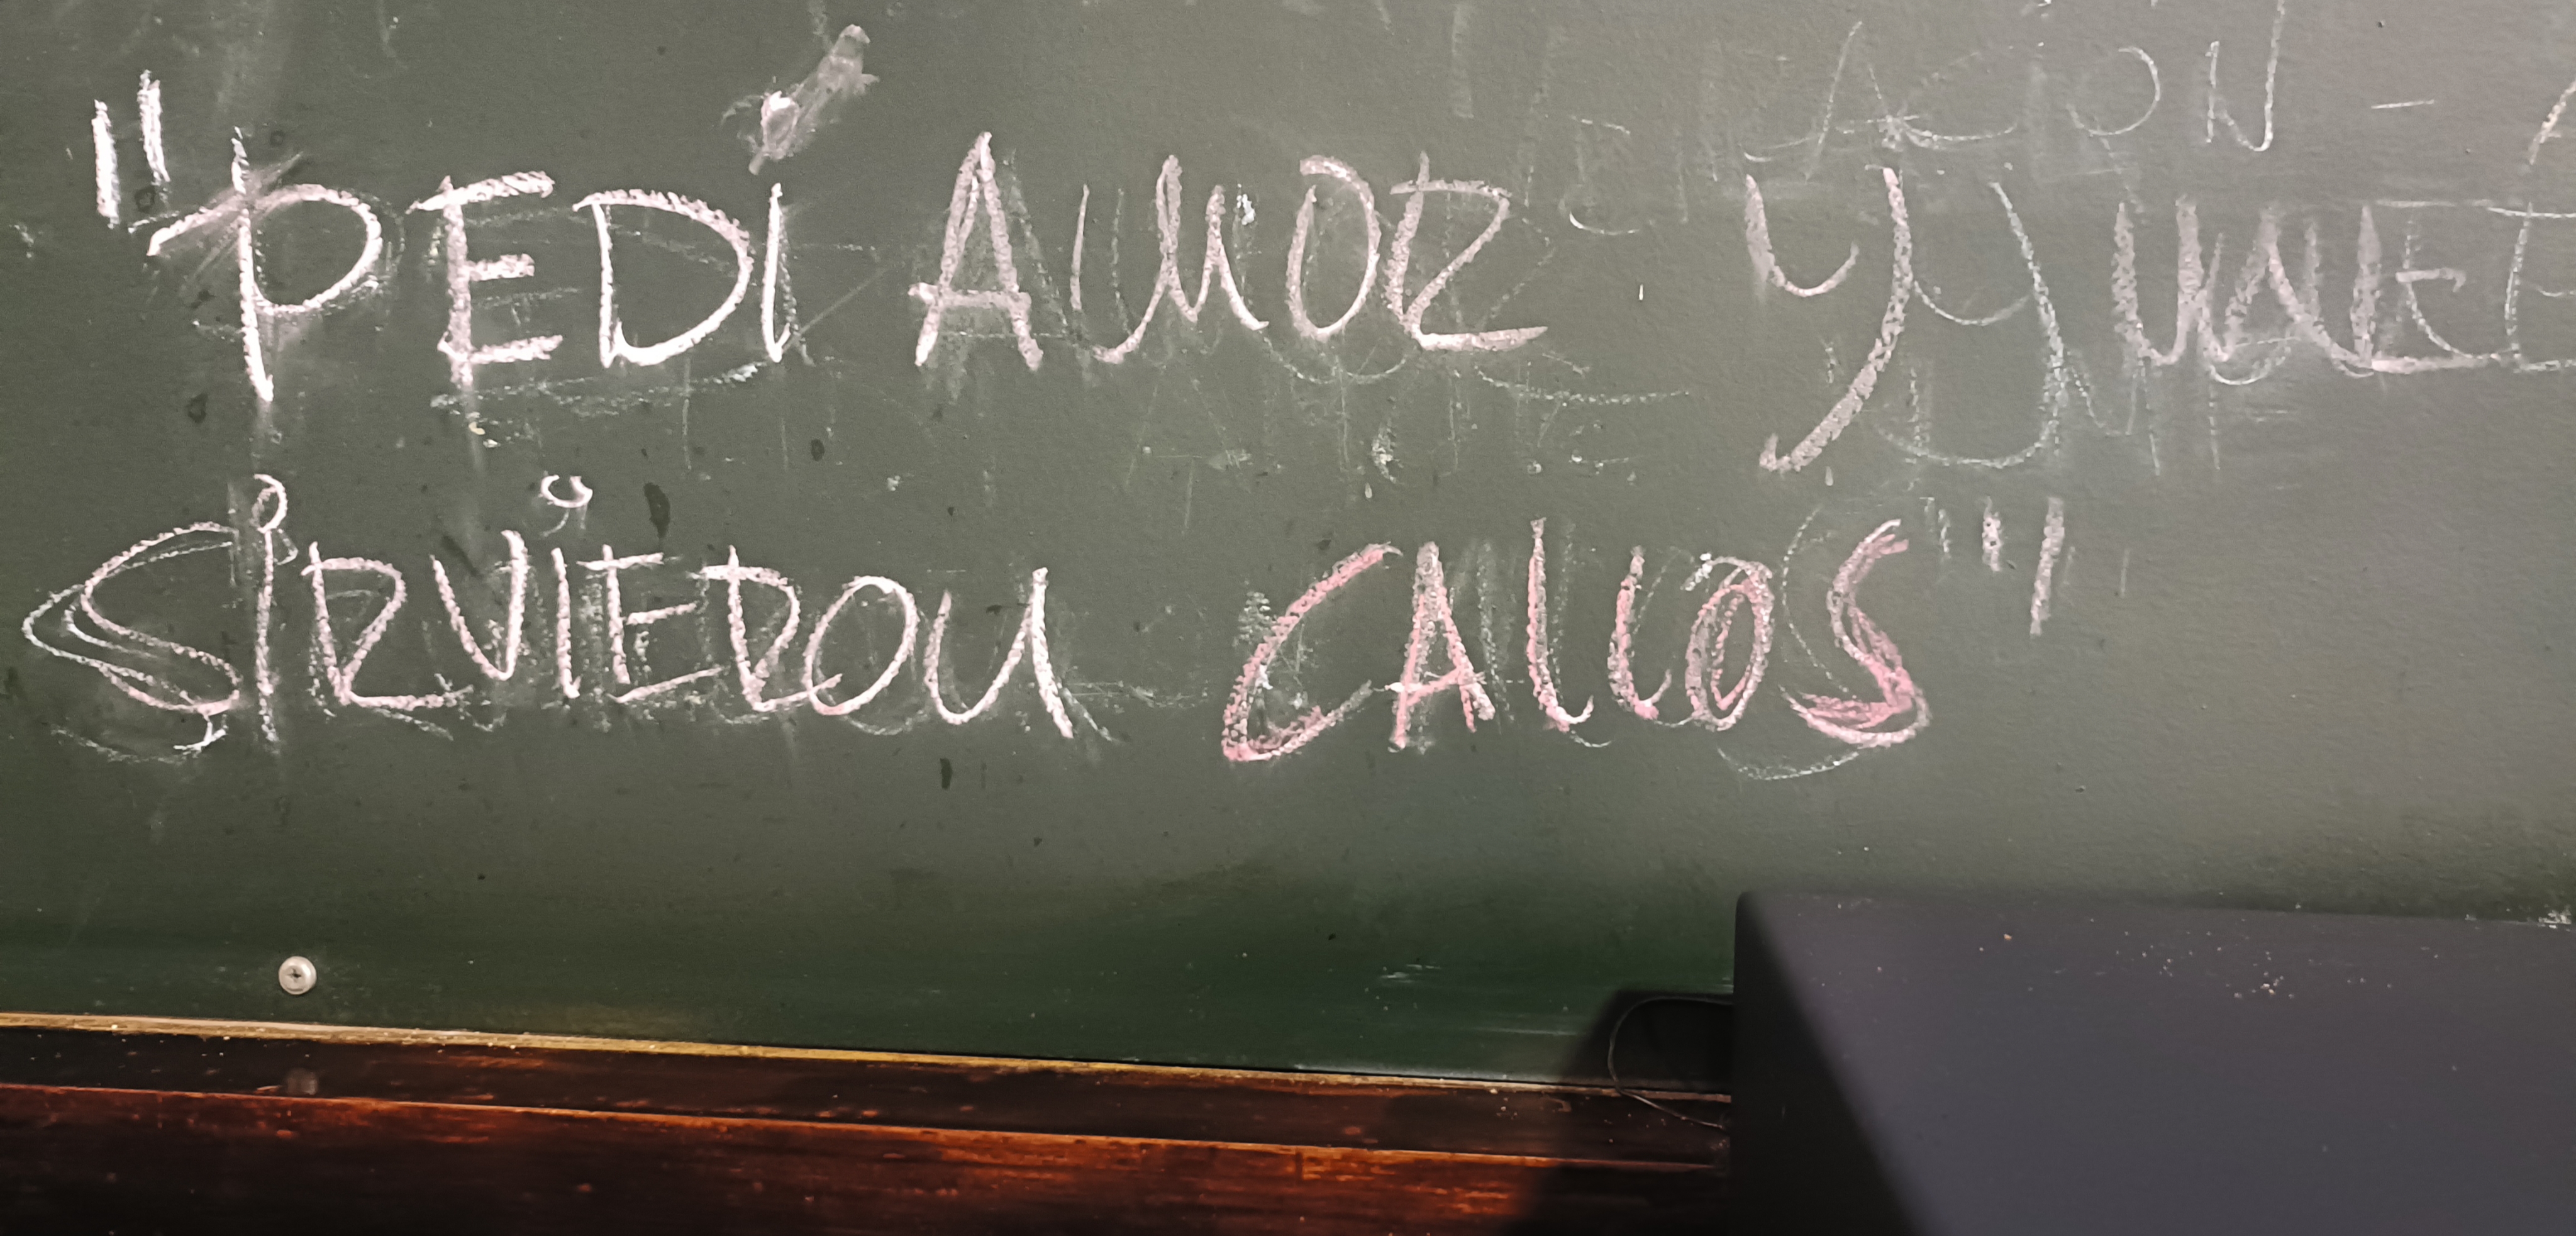 "PEDÍ AMOR Y ME
SIRVIERON CALLOS"